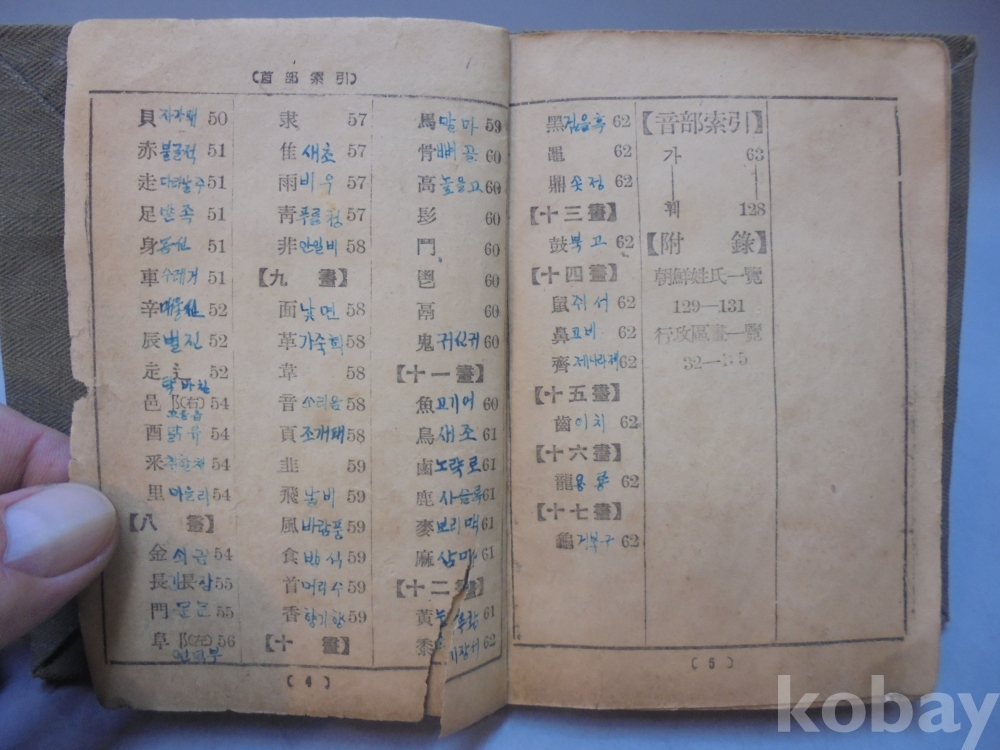 【首部索引】
貝 50
赤 51
走 51
足 발족 51
身 51
車 수레거 51
辛 52
辰 별진 52
走 辶 52
邑 阝(右) 54
酉 닭유 54
釆 54
里 마을리 54
【八畫】
金 쇠금 54
長 긴長장 55
門 문문 55
阜 阝(左) 56
언덕부
隶 57
隹 새초 57
雨 비우 57
靑 푸를청 57
非 안일비 58
【九畫】
面 낯면 58
革 가죽혁 58
韋 58
音 소리음 58
頁 조개패 58
韭 59
飛 날비 59
風 바람풍 59
食 밥식 59
首 머리수 59
香 향기향 59
【十畫】
馬 말마 59
骨 뼈골 60
高 높을고 60
髟 60
鬥 60
鬯 60
鬲 60
鬼 귀신귀 60
【十一畫】
魚 고기어 60
鳥 새조 61
鹵 노략로 61
鹿 사슴록 61
麥 보리맥 61
麻 삼마 61
【十二畫】
黃 61
黍 62
(4)
黑 검을흑 62
黽 62
鼎 솟정 62
【十三畫】
鼓 북고 62
【十四畫】
鼠 쥐서 62
鼻 코비 62
齊 제나라제 62
【十五畫】
齒 이치 62
【十六畫】
龍 용룡 62
【十七畫】
龜 거북구 62
【音部索引】
가 63
휘 128
【附錄】
朝鮮姓氏一覽
129—131
行政區畫一覽
(5)
kobay